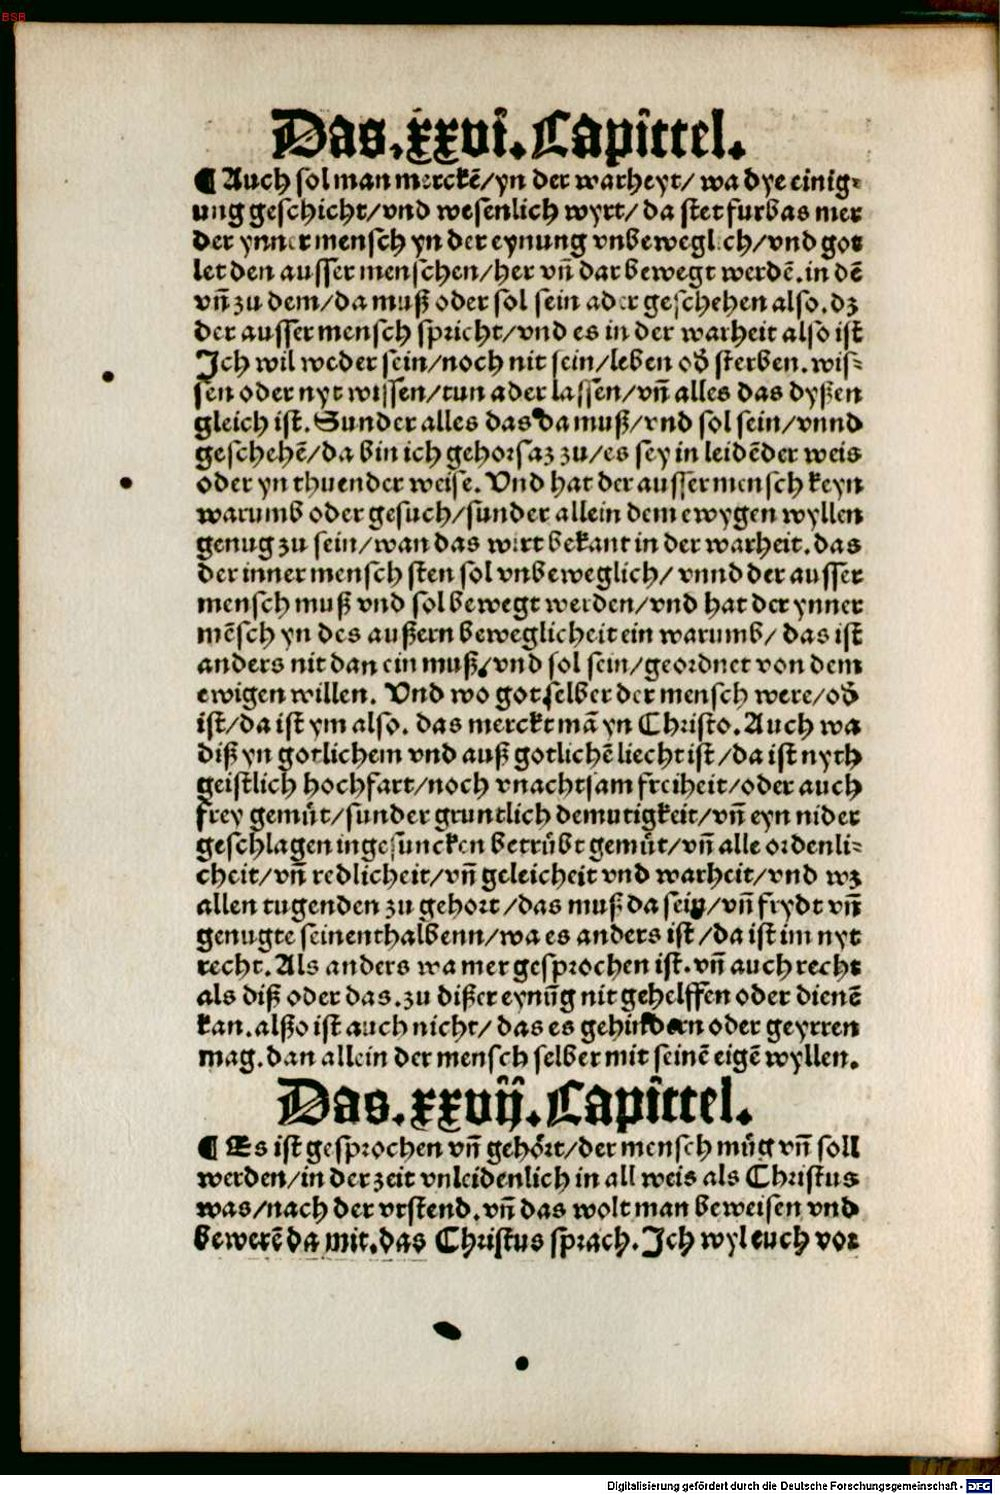 BSB
Das.xxvi.Capittel.
¶ Auch sol man merckē/yn der warheyt/ wa dye einig⸗
ung geschicht/vnd wesenlich wyrt/da stet furbas mer
der ynner mensch yn der eynung vnbeweglich/vnd got
let den ausser menschen/her vñ dar bewegt werdē.in dē
vñ zu dem/da muß oder sol sein ader geschehen also.dz
der ausser mensch spricht/vnd es in der warheit also ist
Ich wil weder sein/noch nit sein/leben od̄ sterben.wis⸗
sen oder nyt wissen/tun ader lassen/vñ alles das dyßen
gleich ist.Sunder alles das da muß/vnd sol sein/vnnd
geschehē/da bin ich gehorsaz zu/es sey in leidēder weis
oder yn thuender weise.Vnd hat der ausser mensch keyn
warumb oder gesuch/sunder allein dem ewygen wyllen
genug zu sein/wan das wirt bekant in der warheit.das
der inner mensch sten sol vnbeweglich/vnnd der ausser
mensch muß vnd sol bewegt werden/vnd hat der ynner
mēsch yn des außern beweglicheit ein warumb/das ist
anders nit dan ein muß/vnd sol sein/geordnet von dem
ewigen willen. Vnd wo got selber der mensch were/od̄
ist/da ist ym also. das merckt mā yn Christo.Auch wa
diß yn gotlichem vnd auß gotlichē liecht ist/da ist nyth
geistlich hochfart/noch vnachtsam freiheit/oder auch
frey gemüt/sunder gruntlich demutigkeit/vñ eyn nider
geschlagen ingesuncken betrübt gemüt/vñ alle ordenli⸗
cheit/vñ redlicheit/vñ geleicheit vnd warheit/vnd wz
allen tugenden zu gehort/das muß da sein/vñ frydt vñ
genugte seinenthalbenn/wa es anders ist/da ist im nyt
recht.Als anders wa mer gesprochen ist.vñ auch recht
als diß oder das.zu dißer eynūg nit gehelffen oder dienē
kan.alßo ist auch nicht/das es gehindern oder geyrren
mag.dan allein der mensch selber mit seinē eigē wyllen.
Das.xxvij.Capittel.
¶ Es ist gesprochen vñ gehört/der mensch müg vñ soll
werden/in der zeit vnleidenlich in all weis als Christus
was/nach der vrstend.vñ das wolt man beweisen vnd
bewerē da mit.das Christus sprach.Ich wyl euch vor
Digitalisierung gefördert durch die Deutsche Forschungsgemeinschaft - DFG